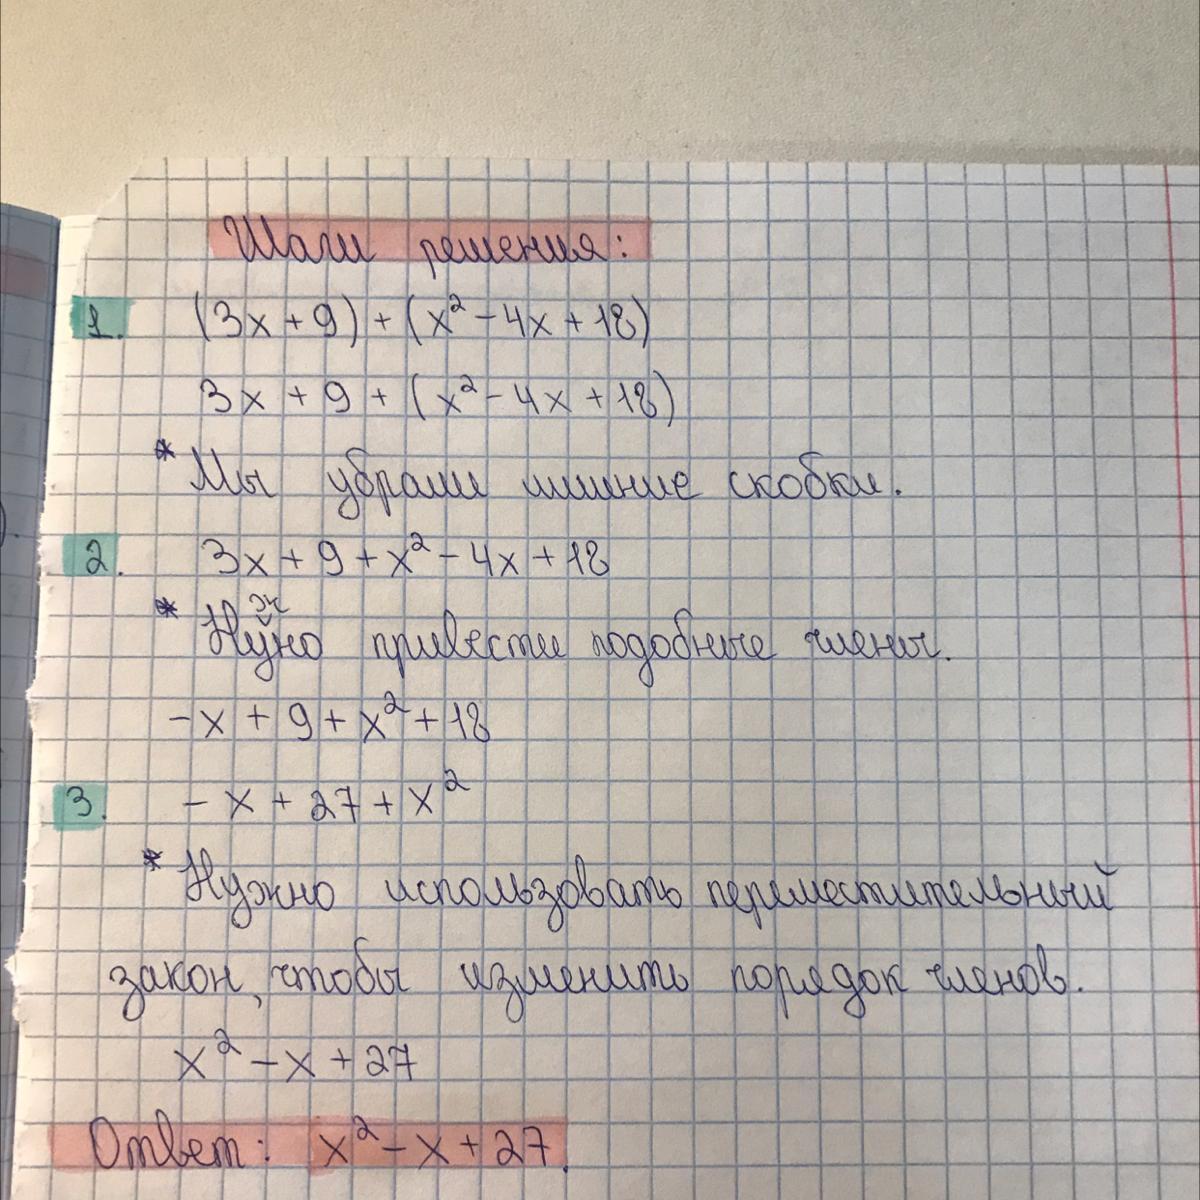 Шаги решения:
1. (3x + 9) + (x² - 4x + 18)
3x + 9 + (x² - 4x + 18)
* Мы убрали лишние скобки.
2. 3x + 9 + x² - 4x + 18
* Нужно привести подобные члены.
-x + 9 + x² + 18
3. -x + 27 + x²
* Нужно использовать переместительный
закон, чтобы изменить порядок членов.
x² - x + 27
Ответ: x² - x + 27.